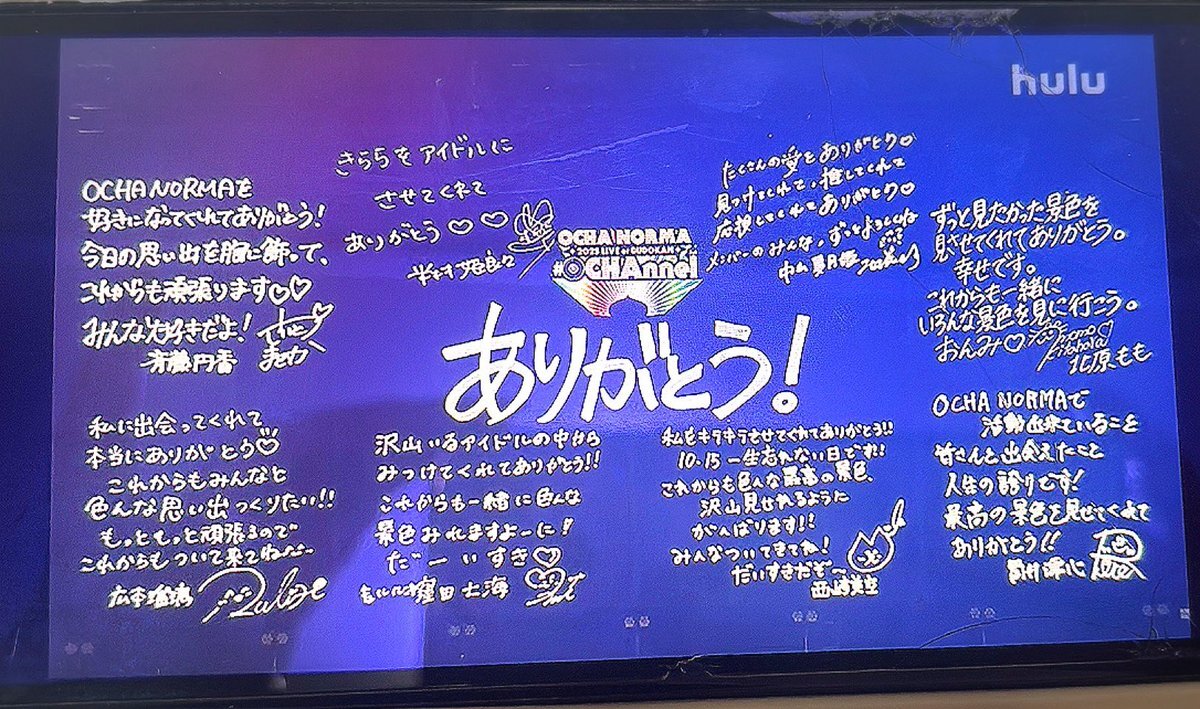 hulu
OCHA NORMAを
好きになってくれてありがとう!
今日の思い出を胸に飾って、
これからも頑張ります♡♡
みんな大好きだよ!
斉藤円香
きららをアイドルに
させてくれて
ありがとう♡♡
米村姫良々
OCHA NORMA
2025 LIVE at BUDOKAN
#OCHAnnel
ありがとう!
たくさんの愛をありがとう♡
見つけてくれて、推してくれて
応援してくれてありがとう♡
メンバーのみんな、ずっとよろしくね
中山夏月姫
ずっと見たかった景色を
見させてくれてありがとう。
幸せです。
これからも一緒に
いろんな景色を見に行こう。
おんみ♡
北原もも
私に出会ってくれて
本当にありがとう♡
これからもみんなと
色んな思い出つくりたい!!
もっともっと頑張るので
これからもついて来てね
広本瑠璃
沢山いるアイドルの中から
みつけてくれてありがとう!!
これからも一緒に色んな
景色みれますよーに!
だーいすき♡
窪田七海
私をキラキラさせてくれてありがとう!!
10.15一生忘れない日です!!
これからも色んな最高の景色、
沢山見せれるように
がんばります!!
みんなついてきてね!
だいすきだぞ〜
西﨑美空
OCHA NORMAで
活動出来ていること
皆さんと出会えたこと
人生の誇りです!
最高の景色を見せてくれて
ありがとう!!
筒井澪心